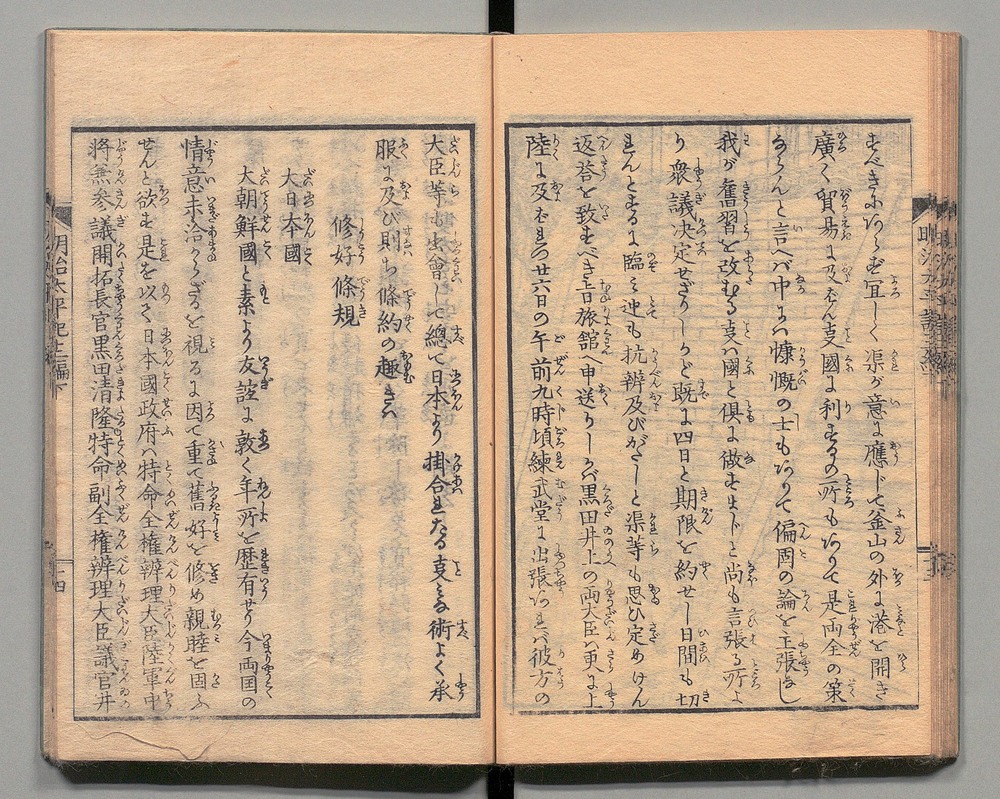 すべきにあらず宜しく渠が意に應じて釜山の外に港を開き
廣く貿易に及ばん事國に利するの所もありて是両全の策
ならんと言へバ中にハ慷慨の士もありて偏固の論を主張なし
我が舊習を改むる事ハ國と俱に做すまドと尚も言張る所よ
り衆議決定せざりしかど既に四日と期限を約せし日間も切
れんとするに臨ミ迚も抗辨及びがたしと渠等も思ひ定めけん
返荅を致すべき旨旅舘へ申送りしかバ黒田井上の両大臣ハ更に上
陸に及ばれつ廿六日の午前九時頃練武堂に出張あれバ彼方の
明治太平記七編下
大臣等も出會して總て日本より掛合れたる事ミな術よく承
服に及び則ち條約の趣きハ
修好條規
大日本國
大朝鮮國と素より友誼に敦く年所を歴有せり今両国の
情意未洽からざるを視るに因て重て舊好を修め親睦を固ふ
せんと欲す是を以て日本國政府ハ特命全権辨理大臣陸軍中
将兼参議開拓長官黒田清隆特命副全権辨理大臣議官井
十四